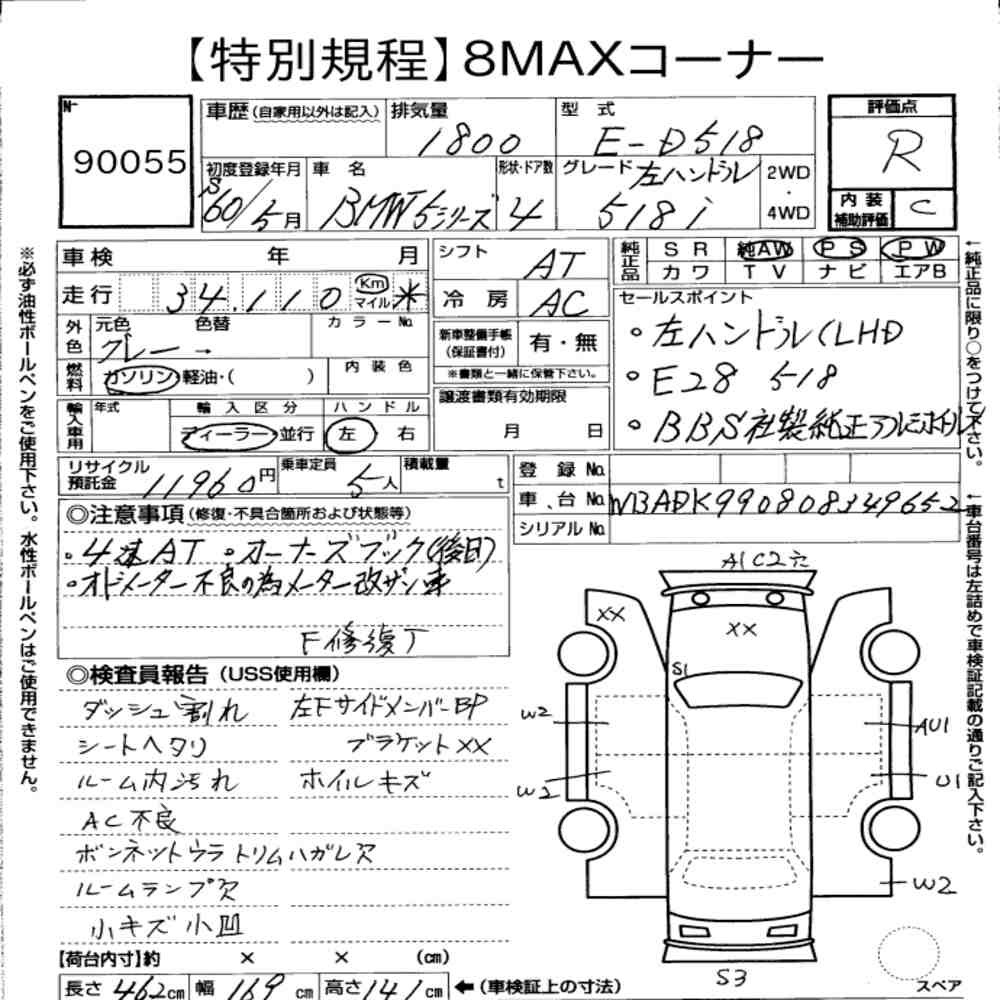 【特別規程】8MAXコーナー
No.
90055
車歴(自家用以外は記入)
排気量
1800
型 式
E-D518
評価点
R
初度登録年月
S60/5月
車 名
BMW5シリーズ
形状・ドア数
4
グレード 左ハンドル
518i
2WD
・
4WD
内装
補助評価
C
車検 年 月
走行 34,110 Km マイル *
シフト AT
冷房 AC
純正品
SR 純AW PS PW
カワ TV ナビ エアB
外色
元色 色替
グレー →
カラーNo.
燃料
ガソリン・軽油・( )
内装色
新車整備手帳
(保証書付)
有・無
※書類と一緒に保管下さい。
セールスポイント
○左ハンドル(LHD
○E28 518
○BBS社製純正アルミホイル
輸入車用
年式
輸入区分
ディーラー・並行
ハンドル
左 右
譲渡書類有効期限
月 日
リサイクル
預託金
11960円
乗車定員
5人
積載量
t
登録No.
車台No. WBADK990808349652
シリアルNo.
◎注意事項(修復・不具合箇所および状態等)
・4速AT ○オーナーズブック(後日)
○オドメーター不良の為メーター改ザン車
F修復丁
◎検査員報告(USS使用欄)
ダッシュ割れ 左FサイドメンバーBP
シートヘタリ ブラケットXX
ルーム内汚れ ホイルキズ
AC不良
ボンネットウラトリムハガレ欠
ルームランプ欠
小キズ小凹
【荷台内寸】約 × × (cm)
長さ462cm 幅169cm 高さ141cm ←(車検証上の寸法)
A1C2穴
XX
XX
S1
W2
W2
AU1
U1
W2
S3
スペア
※必ず油性ボールペンをご使用下さい。水性ボールペンはご使用できません。
←純正品に限り○をつけて下さい。
←車台番号は左詰めで車検証記載の通りご記入下さい。